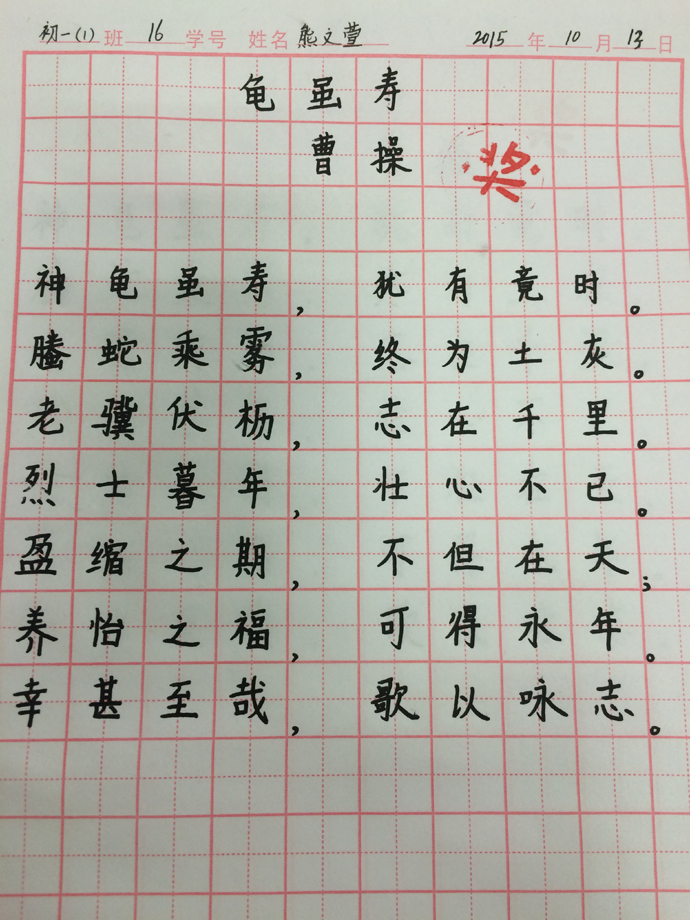 初一(1)班 16 学号 姓名 熊文萱 2015年10月13日
龟虽寿
曹操
奖
神龟虽寿，犹有竟时。
腾蛇乘雾，终为土灰。
老骥伏枥，志在千里。
烈士暮年，壮心不已。
盈缩之期，不但在天；
养怡之福，可得永年。
幸甚至哉，歌以咏志。